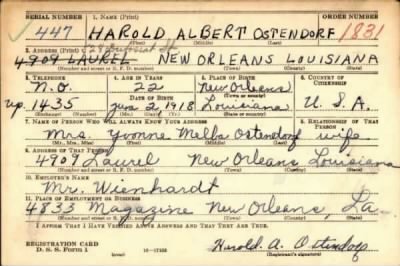 SERIAL NUMBER 1. NAME (Print) ORDER NUMBER
447 HAROLD ALBERT OSTENDORF 1831
(First) (Middle) (Last)
2. ADDRESS (Print)
4909 LAUREL NEW ORLEANS LOUISIANA
(Number and street or R. F. D. number) (Town) (County) (State)
3. TELEPHONE 4. AGE IN YEARS 5. PLACE OF BIRTH 6. COUNTRY OF CITIZENSHIP
N.O. 22 New Orleans
(Town or county)
Up. 1435 June 2, 1918 Louisiana U.S.A.
(Exchange) (Number) (Mo.) (Day) (Yr.) (State or country)
7. NAME OF PERSON WHO WILL ALWAYS KNOW YOUR ADDRESS 8. RELATIONSHIP OF THAT PERSON
Mrs. Yvonne Melba Ostendorf wife
(Mr., Mrs., Miss) (First) (Middle) (Last)
9. ADDRESS OF THAT PERSON
4909 Laurel New Orleans Louisiana
(Number and street or R. F. D. number) (Town) (County) (State)
10. EMPLOYER'S NAME
Mr. Wienhardt
11. PLACE OF EMPLOYMENT OR BUSINESS
4833 Magazine New Orleans, La.
(Number and street or R. F. D. number) (Town) (County) (State)
I AFFIRM THAT I HAVE VERIFIED ABOVE ANSWERS AND THAT THEY ARE TRUE.
REGISTRATION CARD
D. S. S. Form 1 Harold A. Ostendorf
(Registrant's signature)